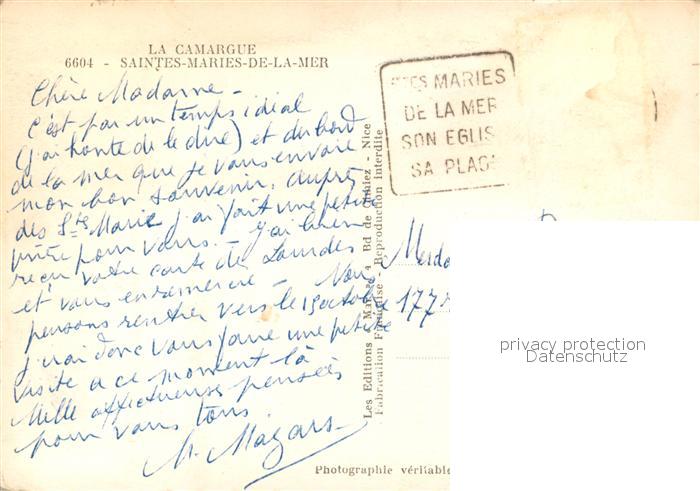 LA CAMARGUE
6604 - SAINTES-MARIES-DE-LA-MER
Chère Madame -
C'est par un temps idéal
(j'ai honte de le dire) et du bord
de la mer que je vous envoie
mon bon souvenir. Auprès
des Stes Maries j'ai fait une petite
prière pour vous. - J'ai bien
reçu votre carte de Lourdes
et vous en remercie - Nous
pensons rentrer vers le 15 octobre
j'irai donc vous faire une petite
visite à ce moment là
Mille affectueuses pensées
pour vous tous
M. Mazars
STES MARIES
DE LA MER
SON EGLIS
SA PLAG
Les Editions « Mar » 4 Bd de Cimiez - Nice
Fabrication Française - Reproduction Interdite
177
privacy protection
Datenschutz
Photographie véritable